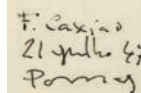 F. Caxias
21 Julho 47
Pomar